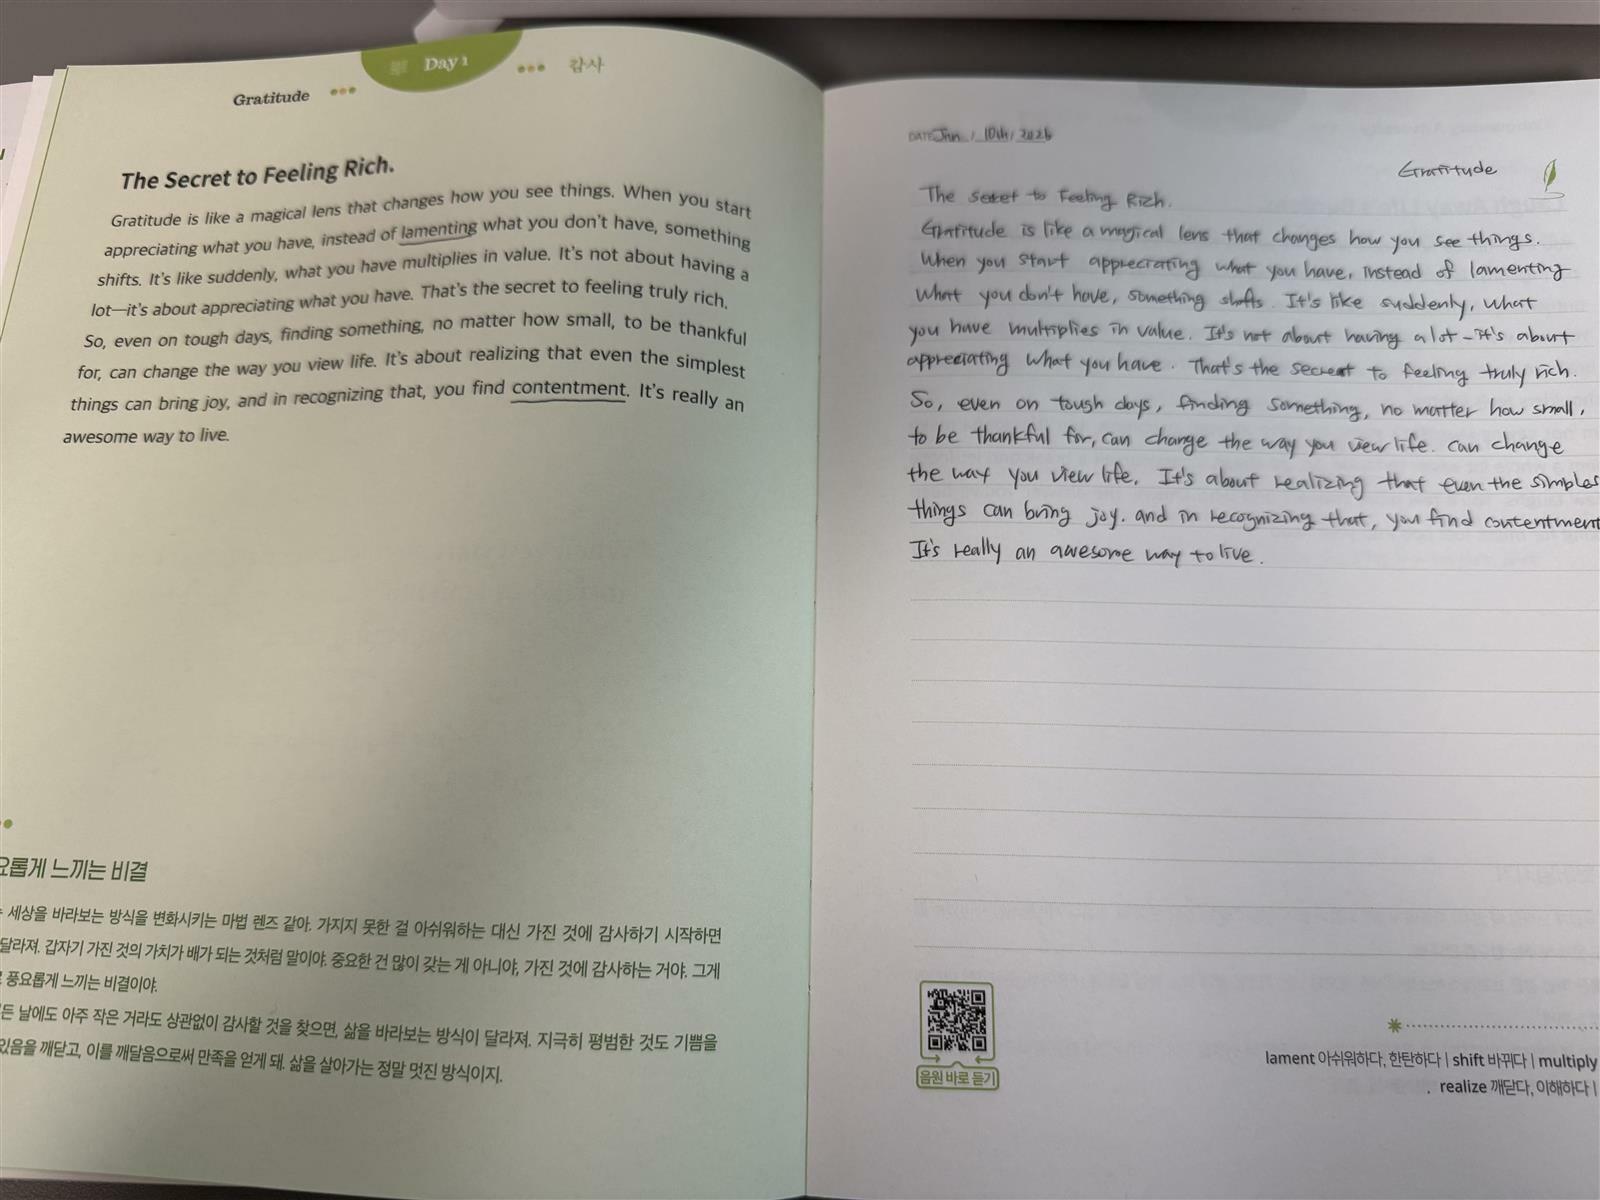 Gratitude
Day 1
감사
The Secret to Feeling Rich.
Gratitude is like a magical lens that changes how you see things. When you start
appreciating what you have, instead of lamenting what you don't have, something
shifts. It's like suddenly, what you have multiplies in value. It's not about having a
lot—it's about appreciating what you have. That's the secret to feeling truly rich.
So, even on tough days, finding something, no matter how small, to be thankful
for, can change the way you view life. It's about realizing that even the simplest
things can bring joy, and in recognizing that, you find contentment. It's really an
awesome way to live.
요롭게 느끼는 비결
세상을 바라보는 방식을 변화시키는 마법 렌즈 같아. 가지지 못한 걸 아쉬워하는 대신 가진 것에 감사하기 시작하면
달라져. 갑자기 가진 것의 가치가 배가 되는 것처럼 말이야. 중요한 건 많이 갖는 게 아니야, 가진 것에 감사하는 거야. 그게
풍요롭게 느끼는 비결이야.
든 날에도 아주 작은 거라도 상관없이 감사할 것을 찾으면, 삶을 바라보는 방식이 달라져. 지극히 평범한 것도 기쁨을
있음을 깨닫고, 이를 깨달음으로써 만족을 얻게 돼. 삶을 살아가는 정말 멋진 방식이지.
DATE Jan / 10th / 2026
Gratitude
The secret to Feeling Rich.
Gratitude is like a magical lens that changes how you see things.
When you start appreciating what you have, instead of lamenting
what you don't have, something shifts. It's like suddenly, what
you have multiplies in value. It's not about having a lot - it's about
appreciating what you have. That's the secret to feeling truly rich.
So, even on tough days, finding something, no matter how small,
to be thankful for, can change the way you view life. can change
the way you view life. It's about realizing that even the simples
things can bring joy. and in recognizing that, you find contentment
It's really an awesome way to live.
음원 바로 듣기
lament 아쉬워하다, 한탄하다 | shift 바뀌다 | multiply
realize 깨닫다, 이해하다 |